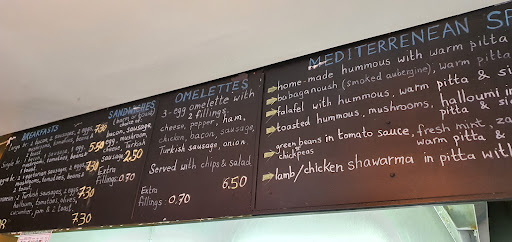 BREAKFASTS
2 bacon, 2 sausages, 2 eggs,
mushrooms, tomatoes, beans
7.30
bacon, sausage, egg,
tomatoes, beans
5.50
2 vegetarian sausages, 2 eggs,
mushrooms, tomatoes, beans
7.30
2 Turkish sausages, 2 eggs,
halloumi, tomatoes, olives,
cucumber,
& 2 toast
7.30
SANDWICHES
bacon, sausage,
egg, mushroom,
cheese, tomato,
Turkish
sausage
2.50
Extra
fillings: 0.70
OMELETTES
3-egg omelette with
2 fillings:
cheese, pepper, ham,
chicken, bacon, sausage,
Turkish sausage, onion
Served with chips & salad
6.50
Extra
fillings: 0.70
MEDITERRENEAN SP
home-made hummous with warm pitta
babaganoush (smoked aubergine), warm pitta
falafel with hummous, warm pitta & si
toasted hummous, mushrooms, halloumi in
pitta & si
green beans in tomato sauce, fresh mint, za
chickpeas
warm pitta &
lamb/chicken shawarma in pitta with